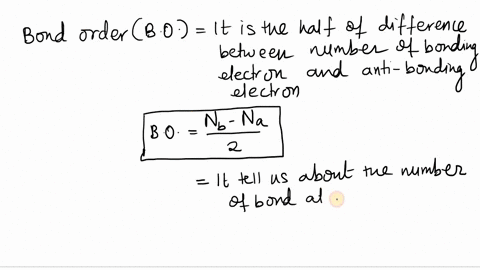 Bond order (B.O.) = It is the half of difference
between number of bonding
electron and anti-bonding
electron
B O. = Nb - Na / 2
= It tell us about the number
of bond at